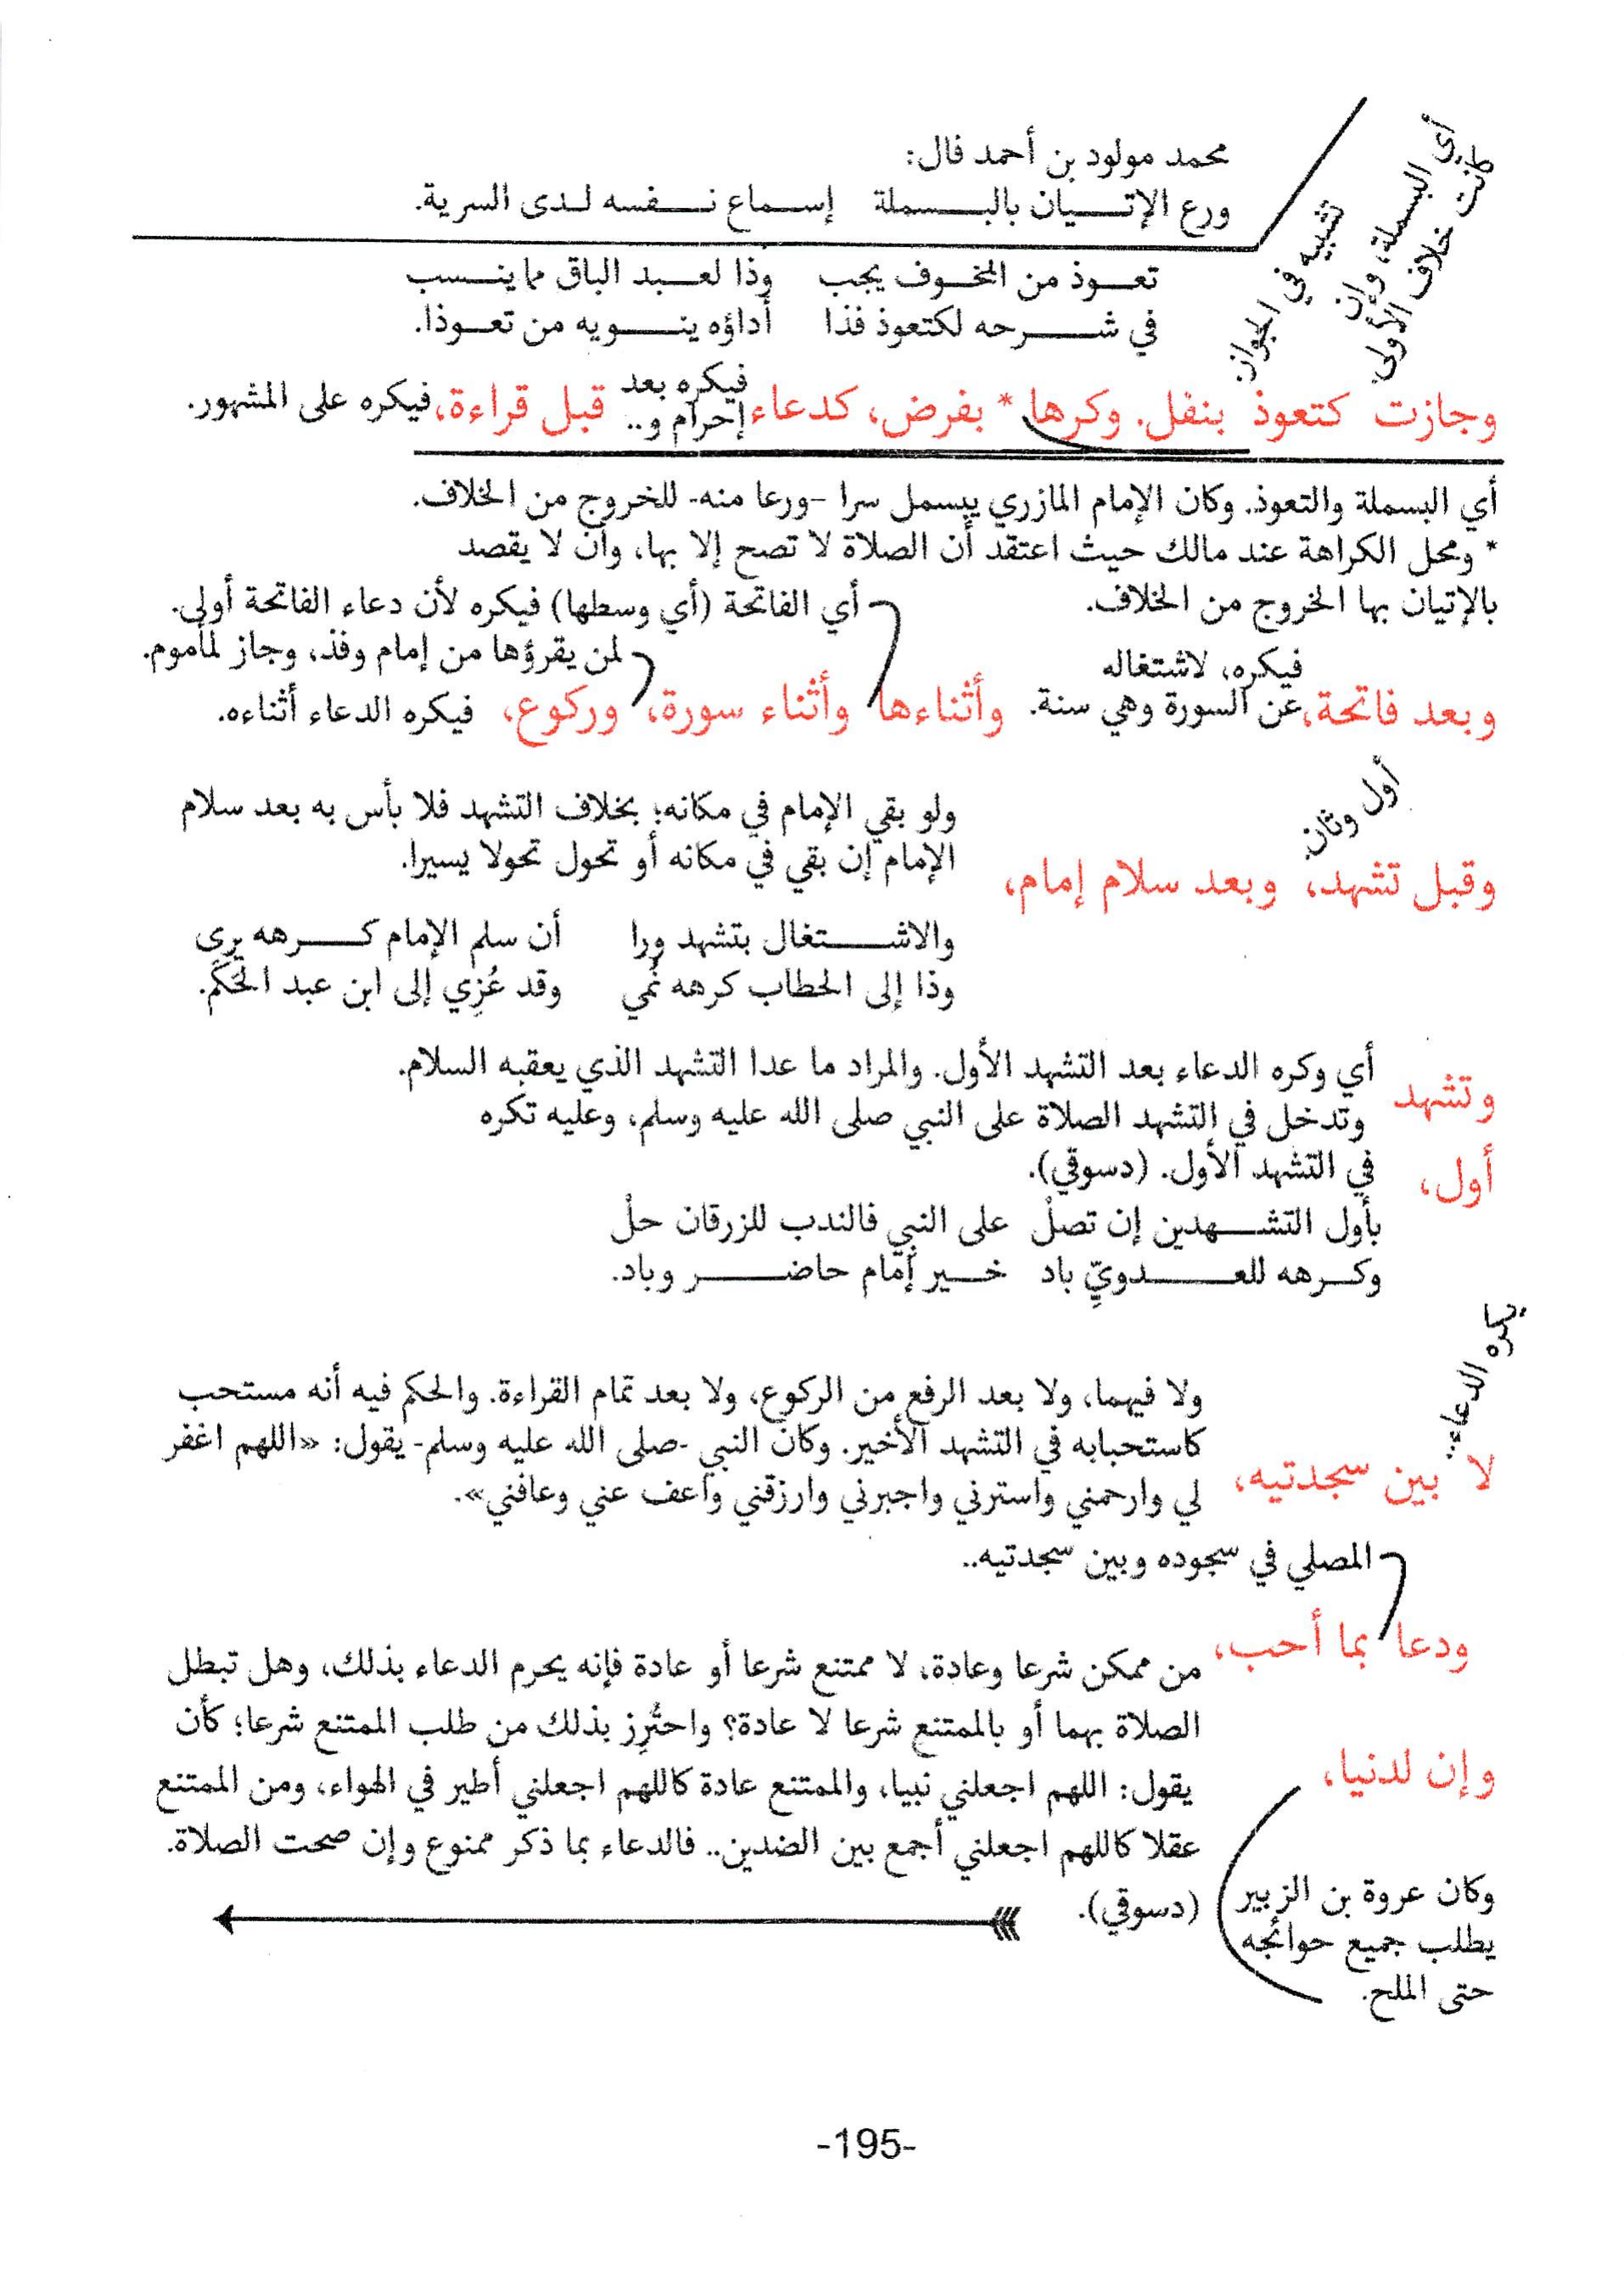 محمد مولود بن أحمد فال:
ورع الإتـــيان بالبـــسملة إسـماع نـفسه لـدى السرية.
تعـوذ من المخوف يجب وذا لعـبد الباق مما ينـسب
في شـــرحه لكتعوذ فذا أداؤه ينـــويه من تعـوذا.
أي البسملة، وإن
كانت خلاف الأولى.
تشبيه في الجواز.
وجازت كتعوذ بنفل. وكرها * بفرض، كدعاء فيكره بعد إحرام و.. قبل قراءة، فيكره على المشهور.
أي البسملة والتعوذ. وكان الإمام المازري يبسمل سرا -ورعا منه- للخروج من الخلاف.
* ومحل الكراهة عند مالك حيث اعتقد أن الصلاة لا تصح إلا بها، وأن لا يقصد
بالإتيان بها الخروج من الخلاف.
أي الفاتحة (أي وسطها) فيكره لأن دعاء الفاتحة أولى.
لمن يقرؤها من إمام وفذ، وجاز لمأموم.
وبعد فاتحة، فيكره، لاشتغاله عن السورة وهي سنة. وأثناءها وأثناء سورة، وركوع، فيكره الدعاء أثناءه.
أول وثان.
ولو بقي الإمام في مكانه؛ بخلاف التشهد فلا بأس به بعد سلام
الإمام إن بقي في مكانه أو تحول تحولا يسيرا.
وقبل تشهد، وبعد سلام إمام،
والاشـــتغال بتشهد ورا أن سلم الإمام كـــرهه يرى
وذا إلى الحطاب كرهه نُمي وقد عُزِي إلى ابن عبد الحَكَم.
وتشهد
أول،
أي وكره الدعاء بعد التشهد الأول. والمراد ما عدا التشهد الذي يعقبه السلام.
وتدخل في التشهد الصلاة على النبي صلى الله عليه وسلم، وعليه تكره
في التشهد الأول. (دسوقي).
بأول التشـــهدين إن تصلْ على النبي فالندب للزرقان حلْ
وكـرهه للعـــدويِّ باد خـير إمام حاضـــر وباد.
يكره الدعاء..
لا بين سجدتيه،
ولا فيهما، ولا بعد الرفع من الركوع، ولا بعد تمام القراءة. والحكم فيه أنه مستحب
كاستحبابه في التشهد الأخير. وكان النبي -صلى الله عليه وسلم- يقول: «اللهم اغفر
لي وارحمني واسترني واجبرني وارزقني واعف عني وعافني».
المصلي في سجوده وبين سجدتيه..
ودعا بما أحب،
من ممكن شرعا وعادة، لا ممتنع شرعا أو عادة فإنه يحرم الدعاء بذلك، وهل تبطل
الصلاة بهما أو بالممتنع شرعا لا عادة؟ واحتُرِز بذلك من طلب الممتنع شرعا؛ كأن
وإن لدنيا،
يقول: اللهم اجعلني نبيا، والممتنع عادة كاللهم اجعلني أطير في الهواء، ومن الممتنع
عقلا كاللهم اجعلني أجمع بين الضدين.. فالدعاء بما ذكر ممنوع وإن صحت الصلاة.
(دسوقي).
وكان عروة بن الزبير
يطلب جميع حوائجه
حتى الملح.
-195-